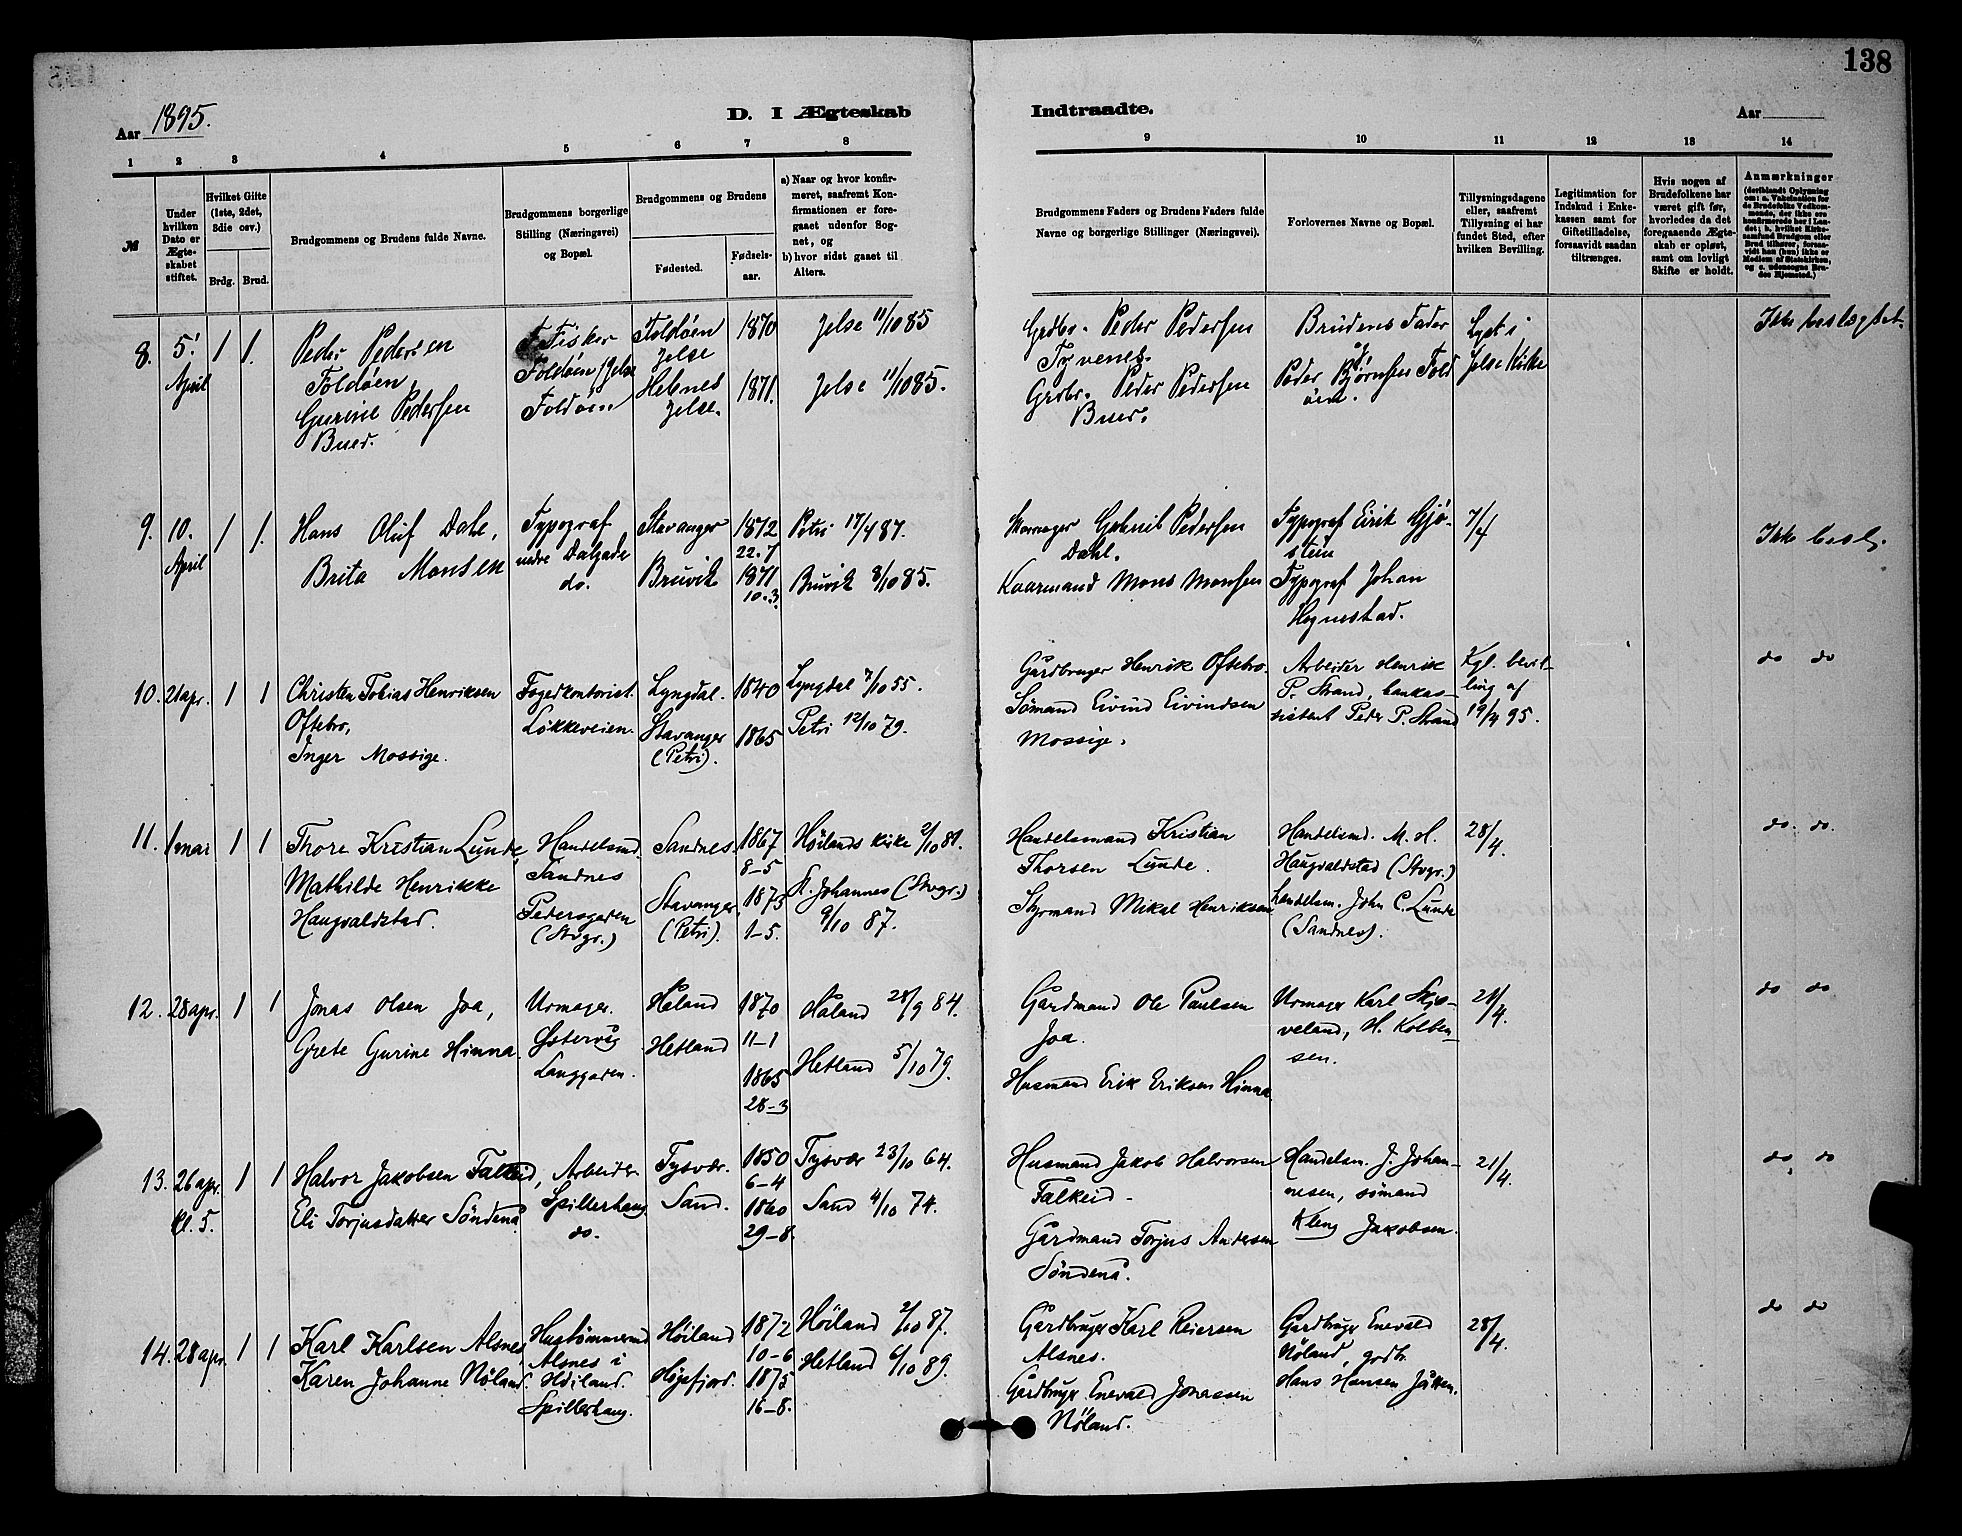 138
Aar 1895.
D. I Ægteskab
Indtraadte.
Aar
1 2 3 4 5 6 7 8
9 10 11 12 13 14
№
Under hvilken Dato er Ægteskabet stiftet.
Hvilket Gifte (1ste, 2det, 3die osv.)
Brdg. Brud.
Brudgommens og Brudens fulde Navne.
Brudgommens borgerlige Stilling (Næringsvei) og Bopæl.
Brudgommens og Brudens
Fødested.
Fødselsaar.
a) Naar og hvor konfirmeret, saafremt Konfirmationen er foregaaet udenfor Sognet, og
b) hvor sidst gaaet til Alters.
Brudgommens Faders og Brudens Faders fulde Navne og borgerlige Stillinger (Næringsvei).
Forlovernes Navne og Bopæl.
Tillysningsdagene eller, saafremt Tillysning ei har fundet Sted, efter hvilken Bevilling.
Legitimation for Indskud i Enkekassen samt for Giftetilladelse, forsaavidt saadan tiltrænges.
Hvis nogen af Brudefolkene har været gift før, hvorledes da det foregaaende Ægteskab er opløst, samt om lovligt Skifte er holdt.
Anmærkninger
8. 5' April 1 1.
Peder Pedersen
Foldøen,
Gurine Pedersen
Bued.
Fisker
Foldøen / Jelse
Foldøen
Foldøen
Jelse
Helenes
Jelse.
1870
1871.
Jelse 11/10 85
Jelse 11/10 85.
Grdbr. Peder Pedersen
Tyvenes.
Grdbr. Peder Pedersen
Bued.
Brudens Fader
og
Peder Bjørnsen Fold
øen.
Lyst i
Jelse Kirke
Ikke beslægtet.
9. 10. April 1 1.
Hans Oluf Dahl,
Brita Monsen
Typograf
nedre Dalgade
do.
Stavanger
Bruvik
1872
22.7
1871
10.3.
Petri 17/4 87.
Bruvik 8/10 85.
Gabriel Pedersen
Dahl.
Kaarmand Mons Monsen
Typograf Eirik Gjø-
stein
Typograf Johan
Hognestad.
7/4
Ikke besl.
10. 21 apr. 1 1
Christen Tobias Henriksen
Oftebro,
Inger Mossige.
Fogedkontorist.
Løkkeveien.
Lyngdal.
Stavanger
(Petri).
1840
1865
Lyngdal 7/10 55.
Petri 12/10 79.
Gårdbruger Henrik Oftebro.
Sømand Eivind Eivindsen
Mossige.
Arbeider Henrik
P. Strand, bankas-
sistent Peder P. Strand
Kgl. bevil-
ling af
19/4 95.
do do
11. 1 mai 1 1
Thore Kristian Lunde,
Mathilde Henrikke
Haugvaldstad.
Handelsmd.
Sandnes
Pedersgaden
(Stvgr.)
Sandnes.
Stavanger
(Petri).
1867
8-5
1873
1-5.
Høilands kirke 2/10 81.
St. Johannes (Stvgr.)
9/10 87.
Handelsmand Kristian
Thorsen Lunde.
Styrmand Mikal Henriksen
Handelsmd. M. H.
Haugvaldstad (Stvgr.)
Handelsm. John C. Lunde
(Sandnes).
28/4.
do do.
12. 28 apr. 1 1
Jonas Olsen Joa,
Grete Gurine Hinna.
Urmager.
Østervåg
Langgaden.
Håland
Hetland
1870
11-1
1865
28-3
Håland 28/9 84.
Hetland 5/10 79.
Gårdmand Ole Paulsen
Joa.
Husmand Erik Eriksen Hinna
Urmager Karl Skjæ-
veland, H. Kolben-
sen.
21/4.
do do
13. 26 apr. kl. 5. 1 1
Halvor Jakobsen Falkeid,
Eli Torjusdatter Søndenå
Arbeider
Spillerhaug
do.
Tysvær.
Sand.
1850
6-4
1860
29-8.
Tysvær 23/10 64.
Sand 4/10 74.
Husmand Jakob Halvorsen
Falkeid -
Gårdmand Torjus Andersen
Søndenå.
Handelsm. J. Johan-
nesen, sømand
Kleng Jakobsen.
21/4.
do do
14. 28 apr. 1 1
Karl Karlsen Alsnes,
Karen Johanne Nøland.
Hustømmermd
Alsnes i
Høiland.
Spillerhaug.
Høiland
Høgsfjord.
1872
10-6
1875
16-8.
Høiland 2/10 87.
Hetland 6/10 89.
Gårdbruger Karl Reiersen
Alsnes.
Gårdbruger Enevald Jonassen
Nøland.
Gårdbruger Enevald
Nøland, grdb.
Hans Hansen Jåtten.
28/4.
do do